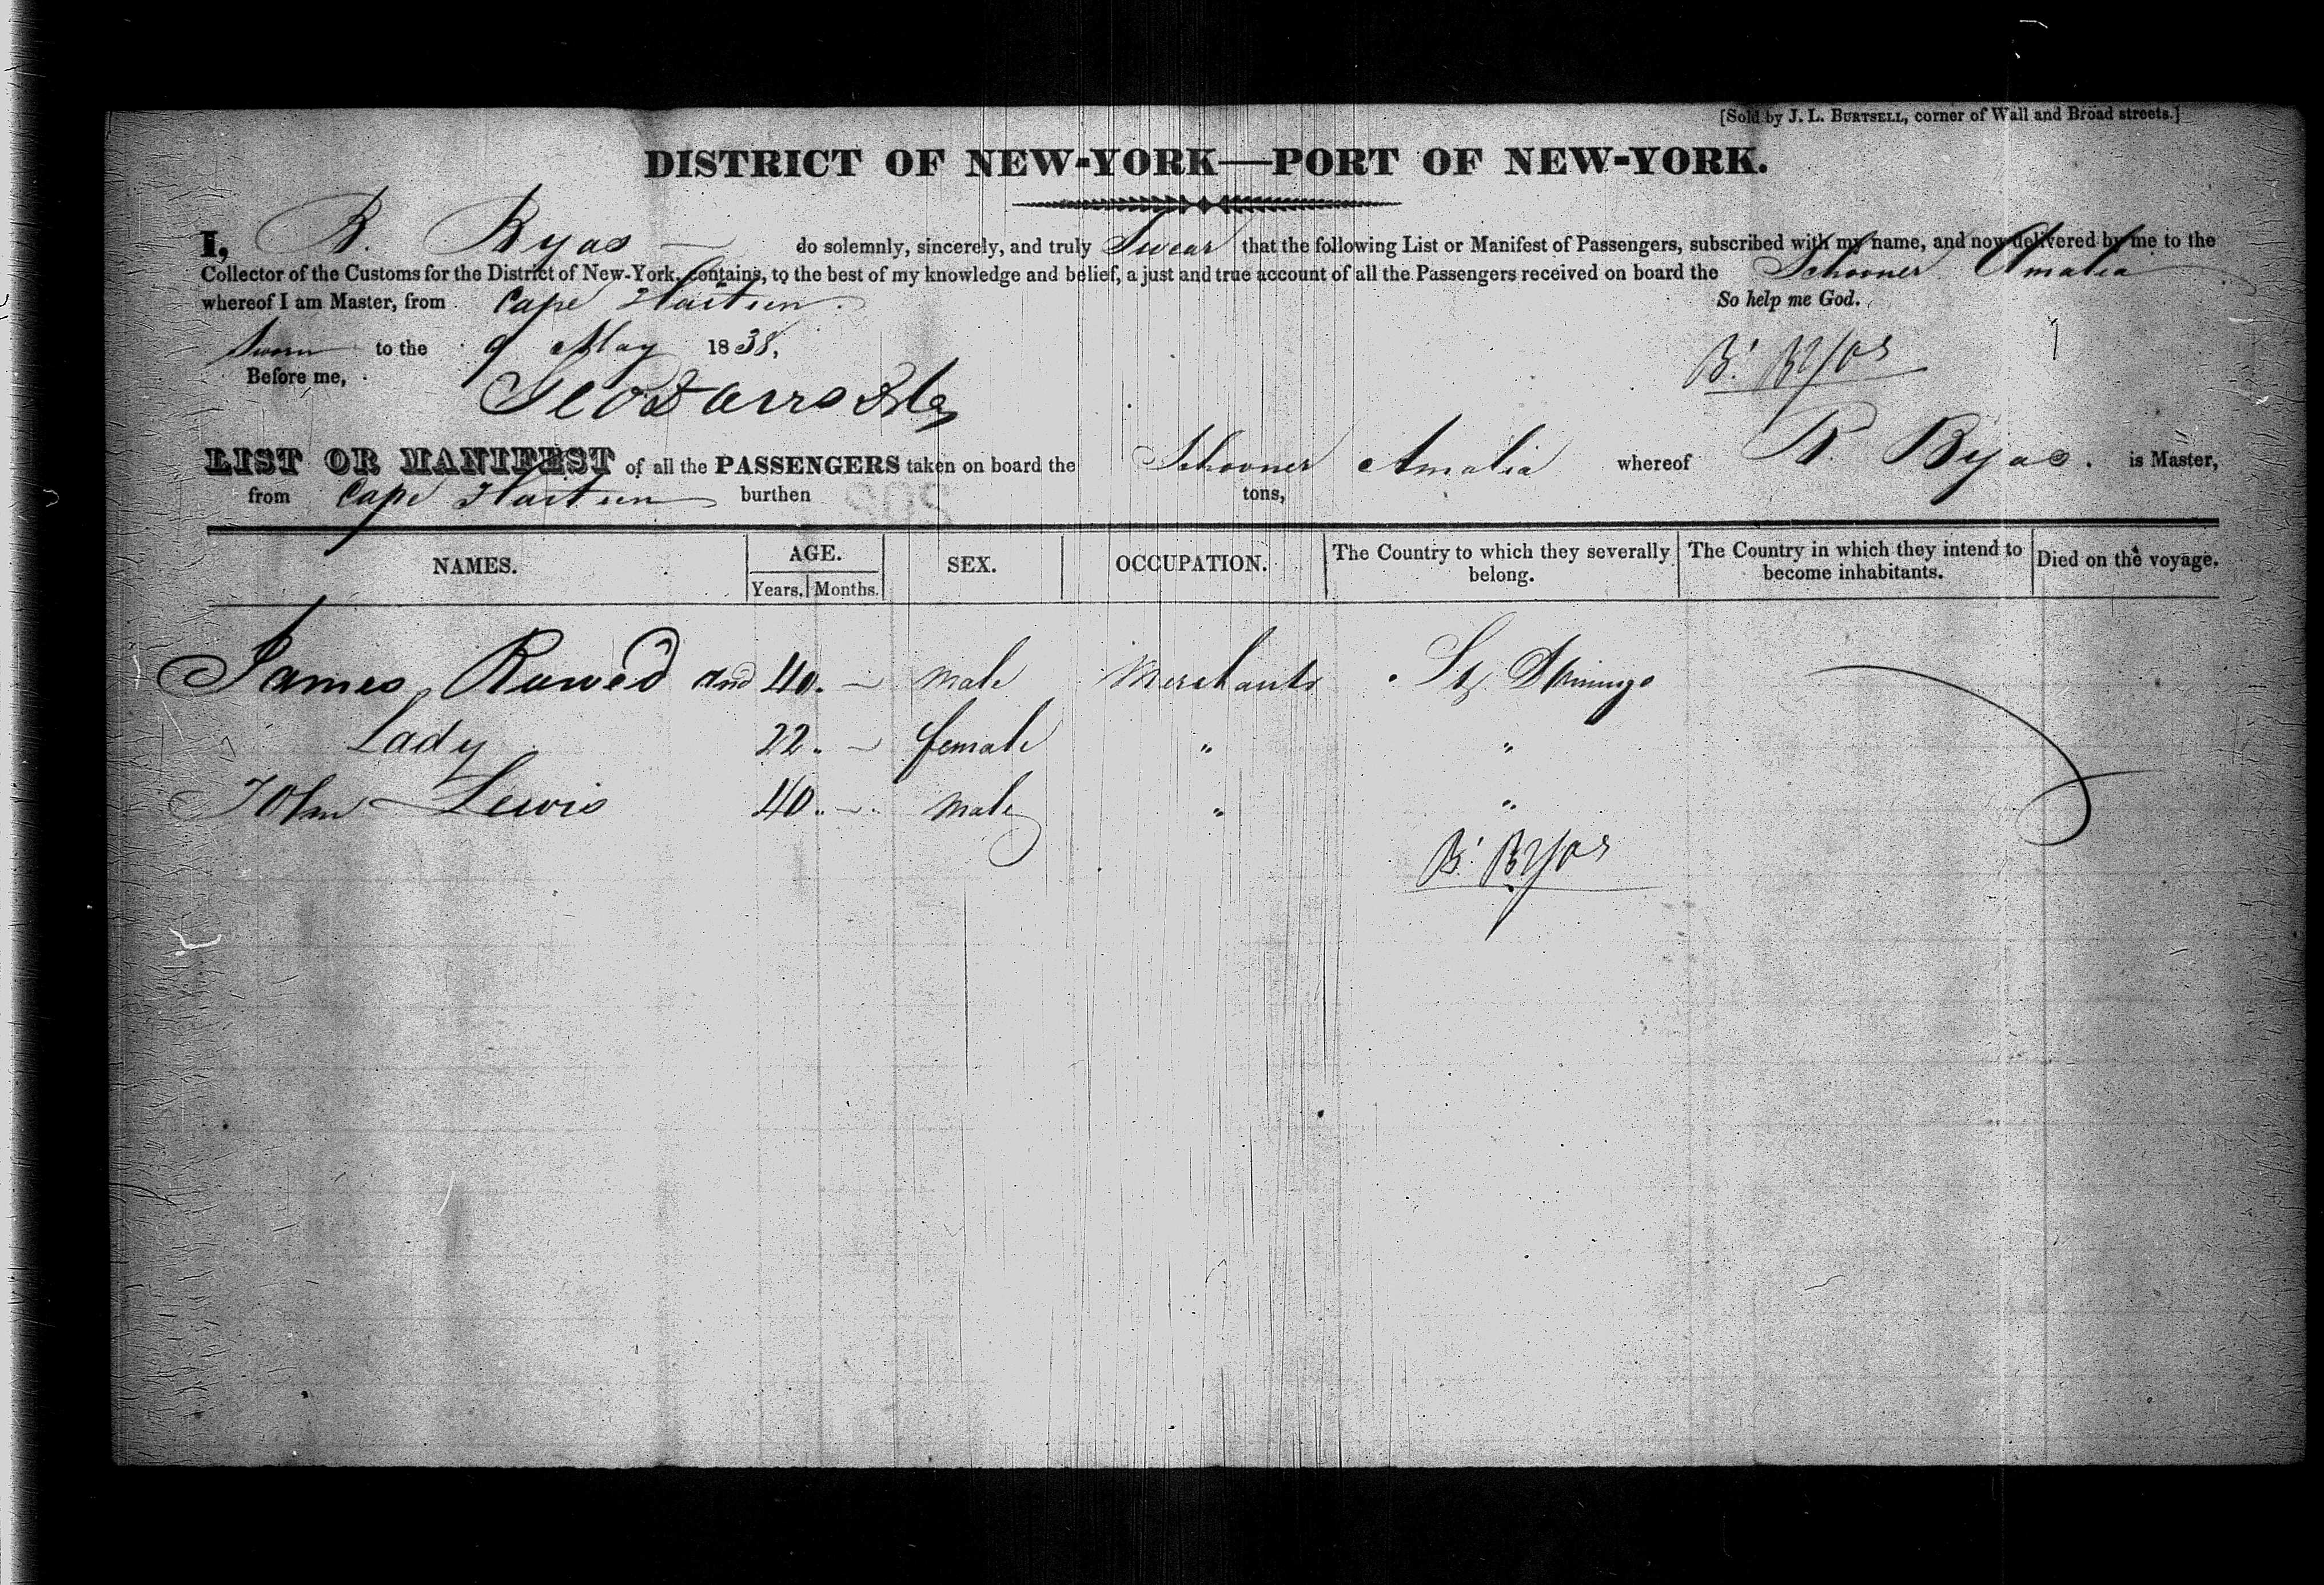 [Sold by J. L. BURTSELL, corner of Wall and Broad streets.]
DISTRICT OF NEW-YORK—PORT OF NEW-YORK.
I, B. Byas do solemnly, sincerely, and truly Swear that the following List or Manifest of Passengers, subscribed with my name, and now delivered by me to the
Collector of the Customs for the District of New-York, contains, to the best of my knowledge and belief, a just and true account of all the Passengers received on board the Schooner Amalia
whereof I am Master, from Cape Haitien So help me God.
Sworn to the 9 May 1838,
Before me,
B. Byas
LIST OR MANIFEST of all the PASSENGERS taken on board the Schooner Amalia whereof B. Byas. is Master,
from Cape Haitien burthen tons,
NAMES. AGE. Years. Months. SEX. OCCUPATION. The Country to which they severally belong. The Country in which they intend to become inhabitants. Died on the voyage.
James and 40. – male Merchants St. Domingo
Lady 22. – female " "
John Lewis 40. – male " "
B. Byas